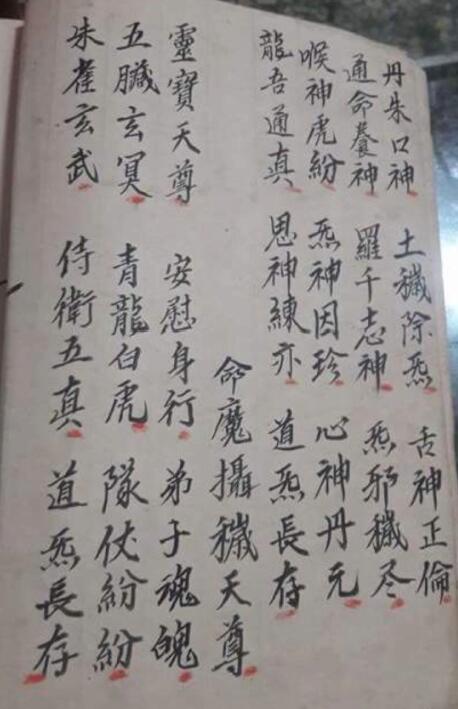 丹朱口神 土穢除炁 舌神正倫
通命養神 羅千志神 炁邪穢尽
喉神虎紛 炁神因珍 心神丹元
龍吾通真 思神練亦 道炁長存
命魔攝穢天尊
靈寶天尊 安慰身行 弟子魂魄
五臟玄冥 青龍白虎 隊仗紛紛
朱雀玄武 侍衛五真 道炁長存